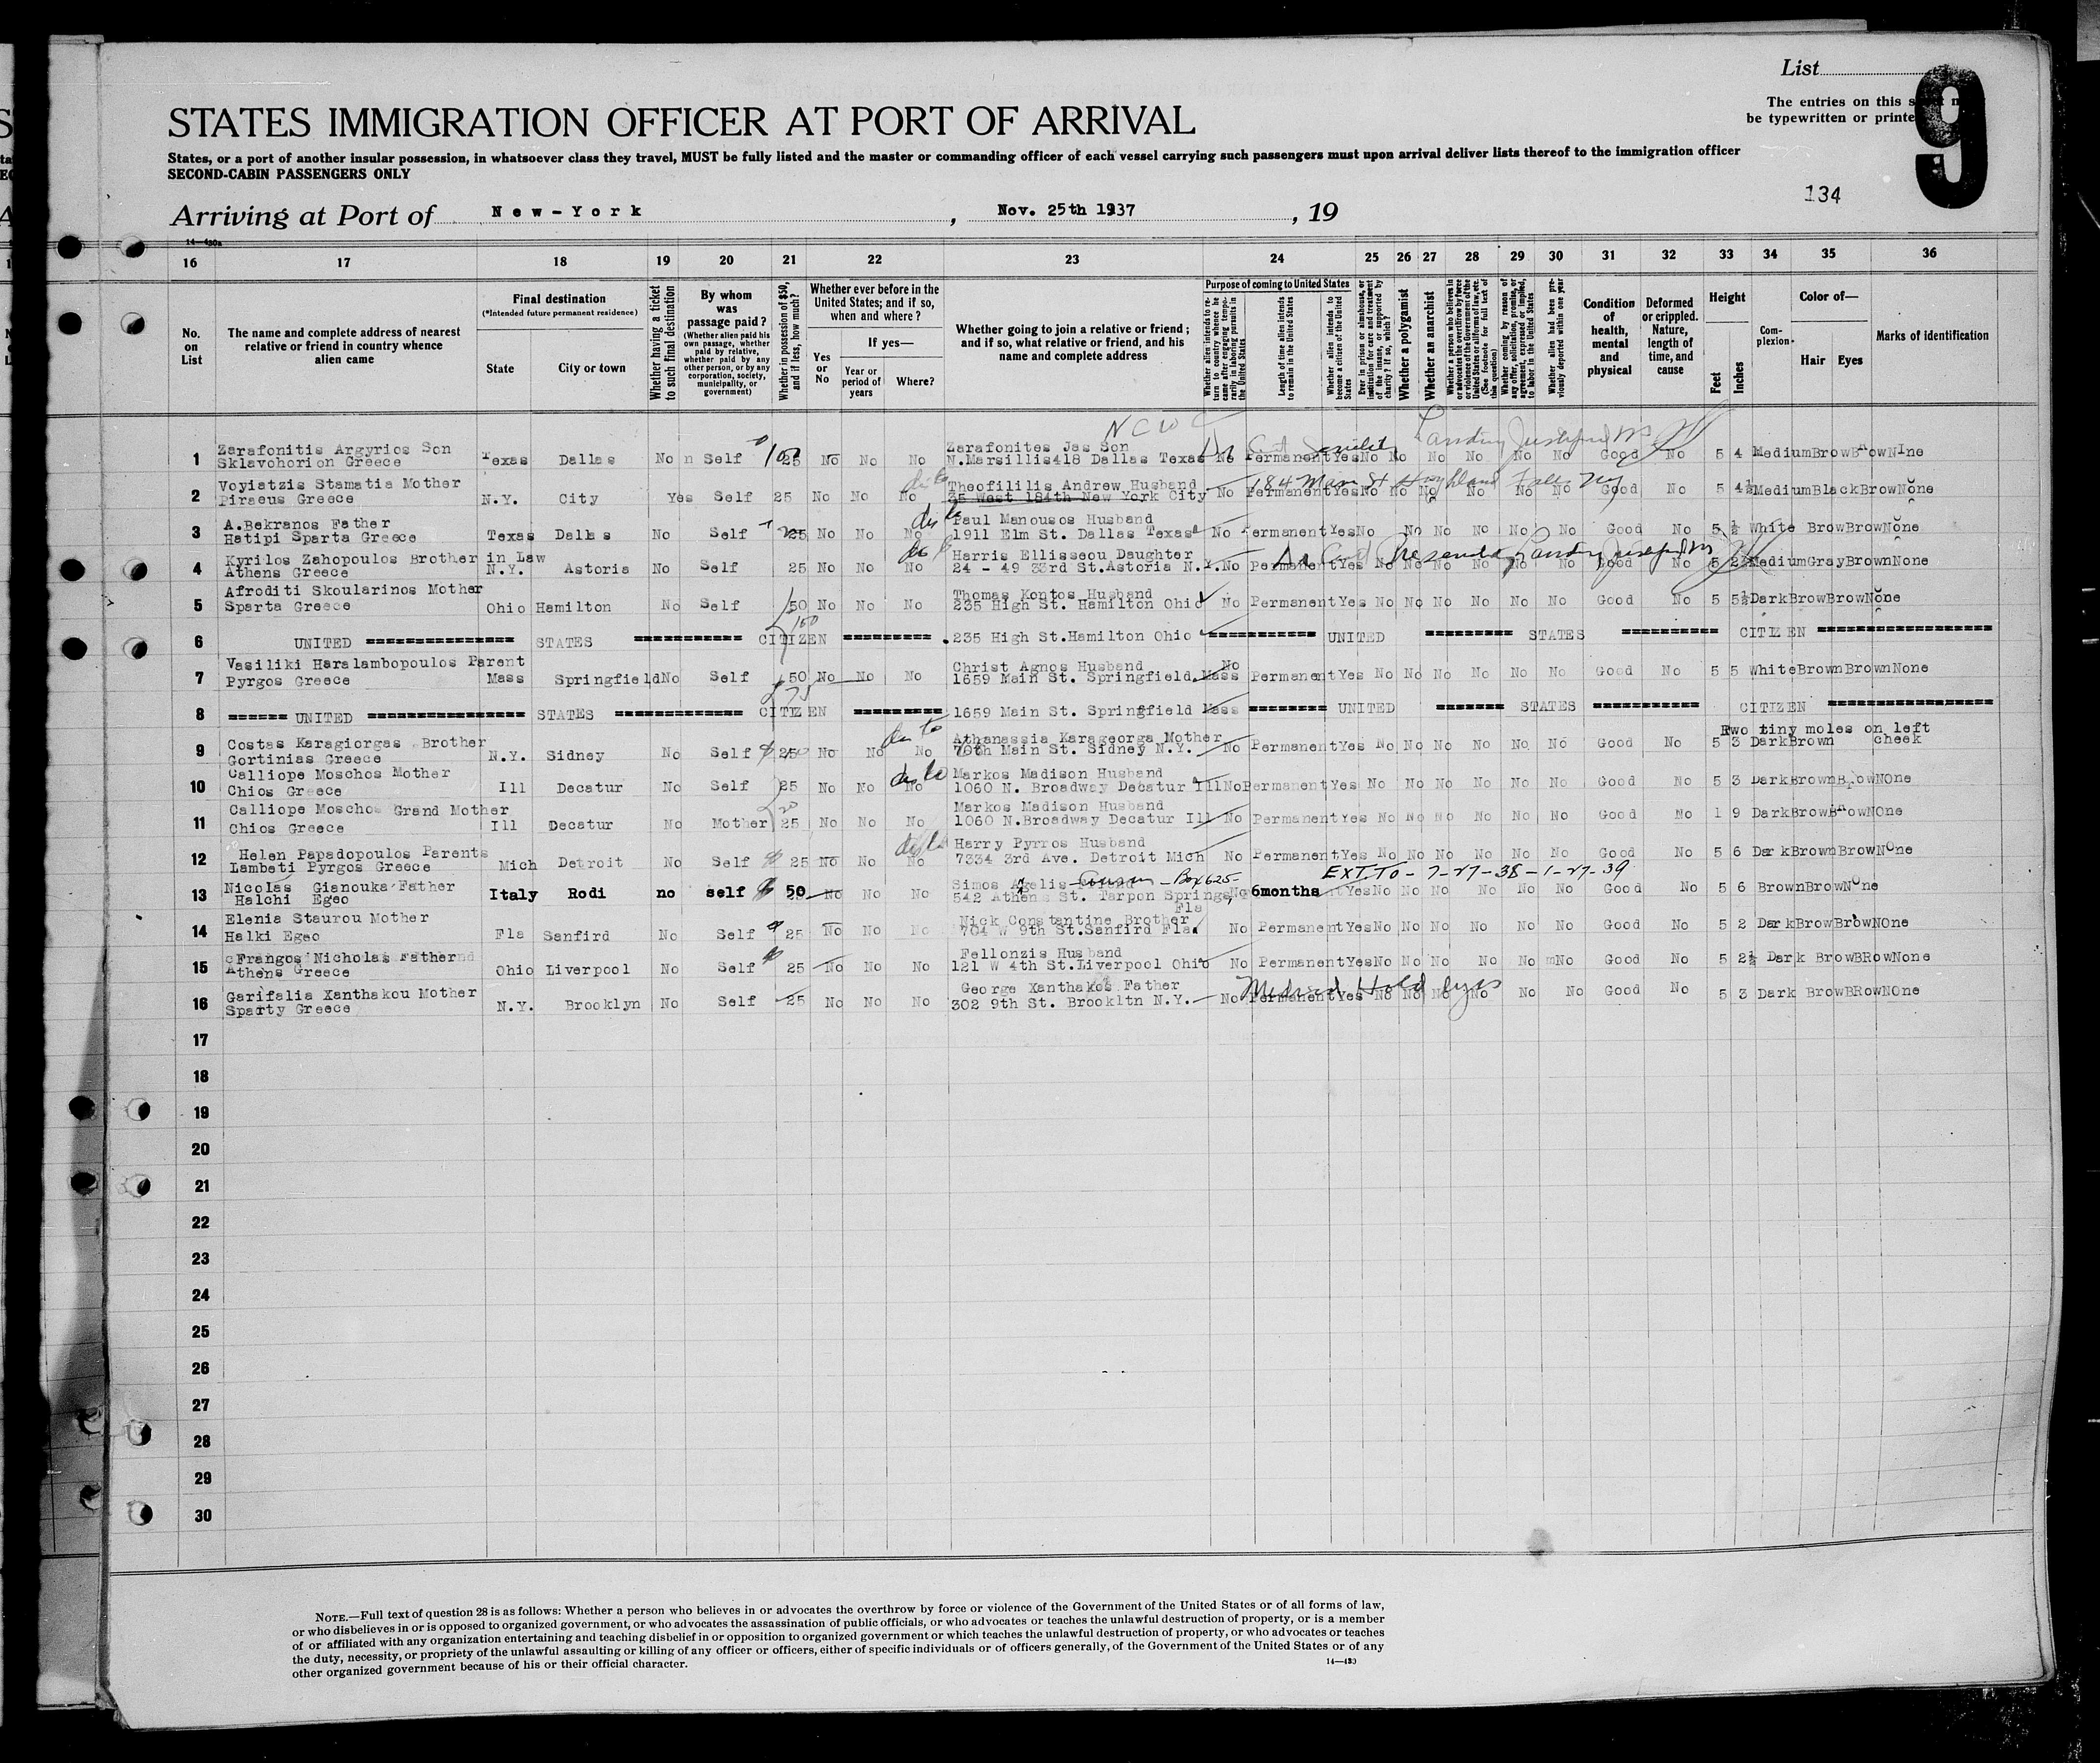 List
The entries on this
be typewritten or printe
9
STATES IMMIGRATION OFFICER AT PORT OF ARRIVAL
States, or a port of another insular possession, in whatsoever class they travel, MUST be fully listed and the master or commanding officer of each vessel carrying such passengers must upon arrival deliver lists thereof to the immigration officer
SECOND-CABIN PASSENGERS ONLY
134
Arriving at Port of New-York, Nov. 25th 1937, 19
16 17 18 19 20 21 22 23 24 25 26 27 28 29 30 31 32 33 34 35 36
No. on List
The name and complete address of nearest relative or friend in country whence alien came
Final destination
(*Intended future permanent residence)
State
City or town
Whether having a ticket to such final destination
By whom was passage paid?
(Whether alien paid his own passage, whether paid by relative, whether paid by any other person, or by any corporation, society, municipality, or government)
Whether in possession of $50, and if less, how much?
Whether ever before in the United States; and if so, when and where?
Yes or No
If yes—
Year or period of years
Where?
Whether going to join a relative or friend; and if so, what relative or friend, and his name and complete address
Purpose of coming to United States
Length of time alien intends to remain in the United States
Whether alien intends to become a citizen of the United States
Whether a polygamist
Whether an anarchist
Whether alien had been previously deported within one year
Condition of health, mental and physical
Deformed or crippled. Nature, length of time, and cause
Height
Feet
Inches
Complexion
Color of—
Hair Eyes
Marks of identification
NCW
Zarafonitis Argyrios Son Zarafonites Jas Son Landing Justified
1 Sklavohorion Greece Texas Dallas No Self 25 No No No N.Marsillis418 Dallas Texas No Permanent Yes No No No No No No Good No 5 4 Medium
Voyiatzis Stamatia Mother Theofililis Andrew Husband 184 Main St Highland Falls NY
2 Piraeus Greece N.Y. City Yes Self 25 No No No 35 West 184th New York City No Permanent Yes No No No No No No Good No 5 4½ Medium Black Brow None
A.Bekranos Father Paul Manousos Husband
3 Hatipi Sparta Greece Texas Dallas No Self 25 No No No 1911 Elm St. Dallas Texas No Permanent Yes No No No No No No Good No 5 ½ White Brow Brow None
Kyrilos Zahopoulos Brother in Law Harris Ellisseou Daughter
4 Athens Greece N.Y. Astoria No Self 25 No No No 24 - 49 33rd St.Astoria N.Y. No Permanent Yes No No No No No No Good No 5 2½ Medium Gray Brown None
Afroditi Skoularinos Mother Thomas Kontos Husband
5 Sparta Greece Ohio Hamilton No Self 50 No No No 235 High St. Hamilton Ohio No Permanent Yes No No No No No No Good No 5 5½ Dark Brow Brow None
6 UNITED STATES CITIZEN 235 High St.Hamilton Ohio UNITED STATES CITIZEN
Vasiliki Haralambopoulos Parent Christ Agnos Husband
7 Pyrgos Greece Mass Springfield No Self 50 No No No 1659 Main St. Springfield Mass No Permanent Yes No No No No No No Good No 5 5 White Brown Brown None
8 UNITED STATES CITIZEN 1659 Main St. Springfield Mass UNITED STATES CITIZEN
Costas Karagiorgas Brother Athanassia Karageorga Mother Two tiny moles on left cheek
9 Gortinias Greece N.Y. Sidney No Self 25 No No No 70th Main St. Sidney N.Y. No Permanent Yes No No No No No No Good No 5 3 Dark Brown
Calliope Moschos Mother Markos Madison Husband
10 Chios Greece Ill Decatur No Self 25 No No No 1060 N. Broadway Decatur Ill No Permanent Yes No No No No No No Good No 5 3 Dark Brown Brow NOne
Calliope Moschos Grand Mother Markos Madison Husband
11 Chios Greece Ill Decatur No Mother 25 No No No 1060 N.Broadway Decatur Ill No Permanent Yes No No No No No No Good No 1 9 Dark Brow Brow NOne
Helen Papadopoulos Parents Harry Pyrros Husband
12 Lambeti Pyrgos Greece Mich Detroit No Self 25 No No No 7334 3rd Ave. Detroit Mich No Permanent Yes No No No No No No Good No 5 6 Dark Brown Brow None
Nicolas Gianouka Father Simos Agelis Cousin - Box 625- EXT TO - 7-27-38 - 1-27-39
13 Halchi Egeo Italy Rodi no self 50 No No No 542 Athens St. Tarpon Springs, Fla No 6months Yes No No No No No No Good No 5 6 Brown Brow None
Elenia Staurou Mother Nick Constantine Brother
14 Halki Egeo Fla Sanfird No Self 25 No No No 704 W 9th St.Sanfird Fla. No Permanent Yes No No No No No No Good No 5 2 Dark Brow Brow NOne
Frangos Nicholas Father Fellonzis Husband
15 Athens Greece Ohio Liverpool No Self 25 No No No 121 W 4th St.Liverpool Ohio No Permanent Yes No No No No No No Good No 5 2½ Dark Brow BRow None
Garifalia Xanthakou Mother George Xanthakos Father Medical Hold Eyes
16 Sparty Greece N.Y. Brooklyn No Self 25 No No No 302 9th St. Brookltn N.Y. No Permanent Yes No No No No No No Good No 5 3 Dark Brow BRow NOne
17
18
19
20
21
22
23
24
25
26
27
28
29
30
NOTE.—Full text of question 28 is as follows: Whether a person who believes in or advocates the overthrow by force or violence of the Government of the United States or of all forms of law,
or who disbelieves in or is opposed to organized government, or who advocates the assassination of public officials, or who advocates or teaches the unlawful destruction of property, or is a member
of or affiliated with any organization entertaining and teaching disbelief in or opposition to organized government or which teaches the unlawful destruction of property, or who advocates or teaches
the duty, necessity, or propriety of the unlawful assaulting or killing of any officer or officers, either of specific individuals or of officers generally, of the Government of the United States or of any
other organized government because of his or their official character.
14—430